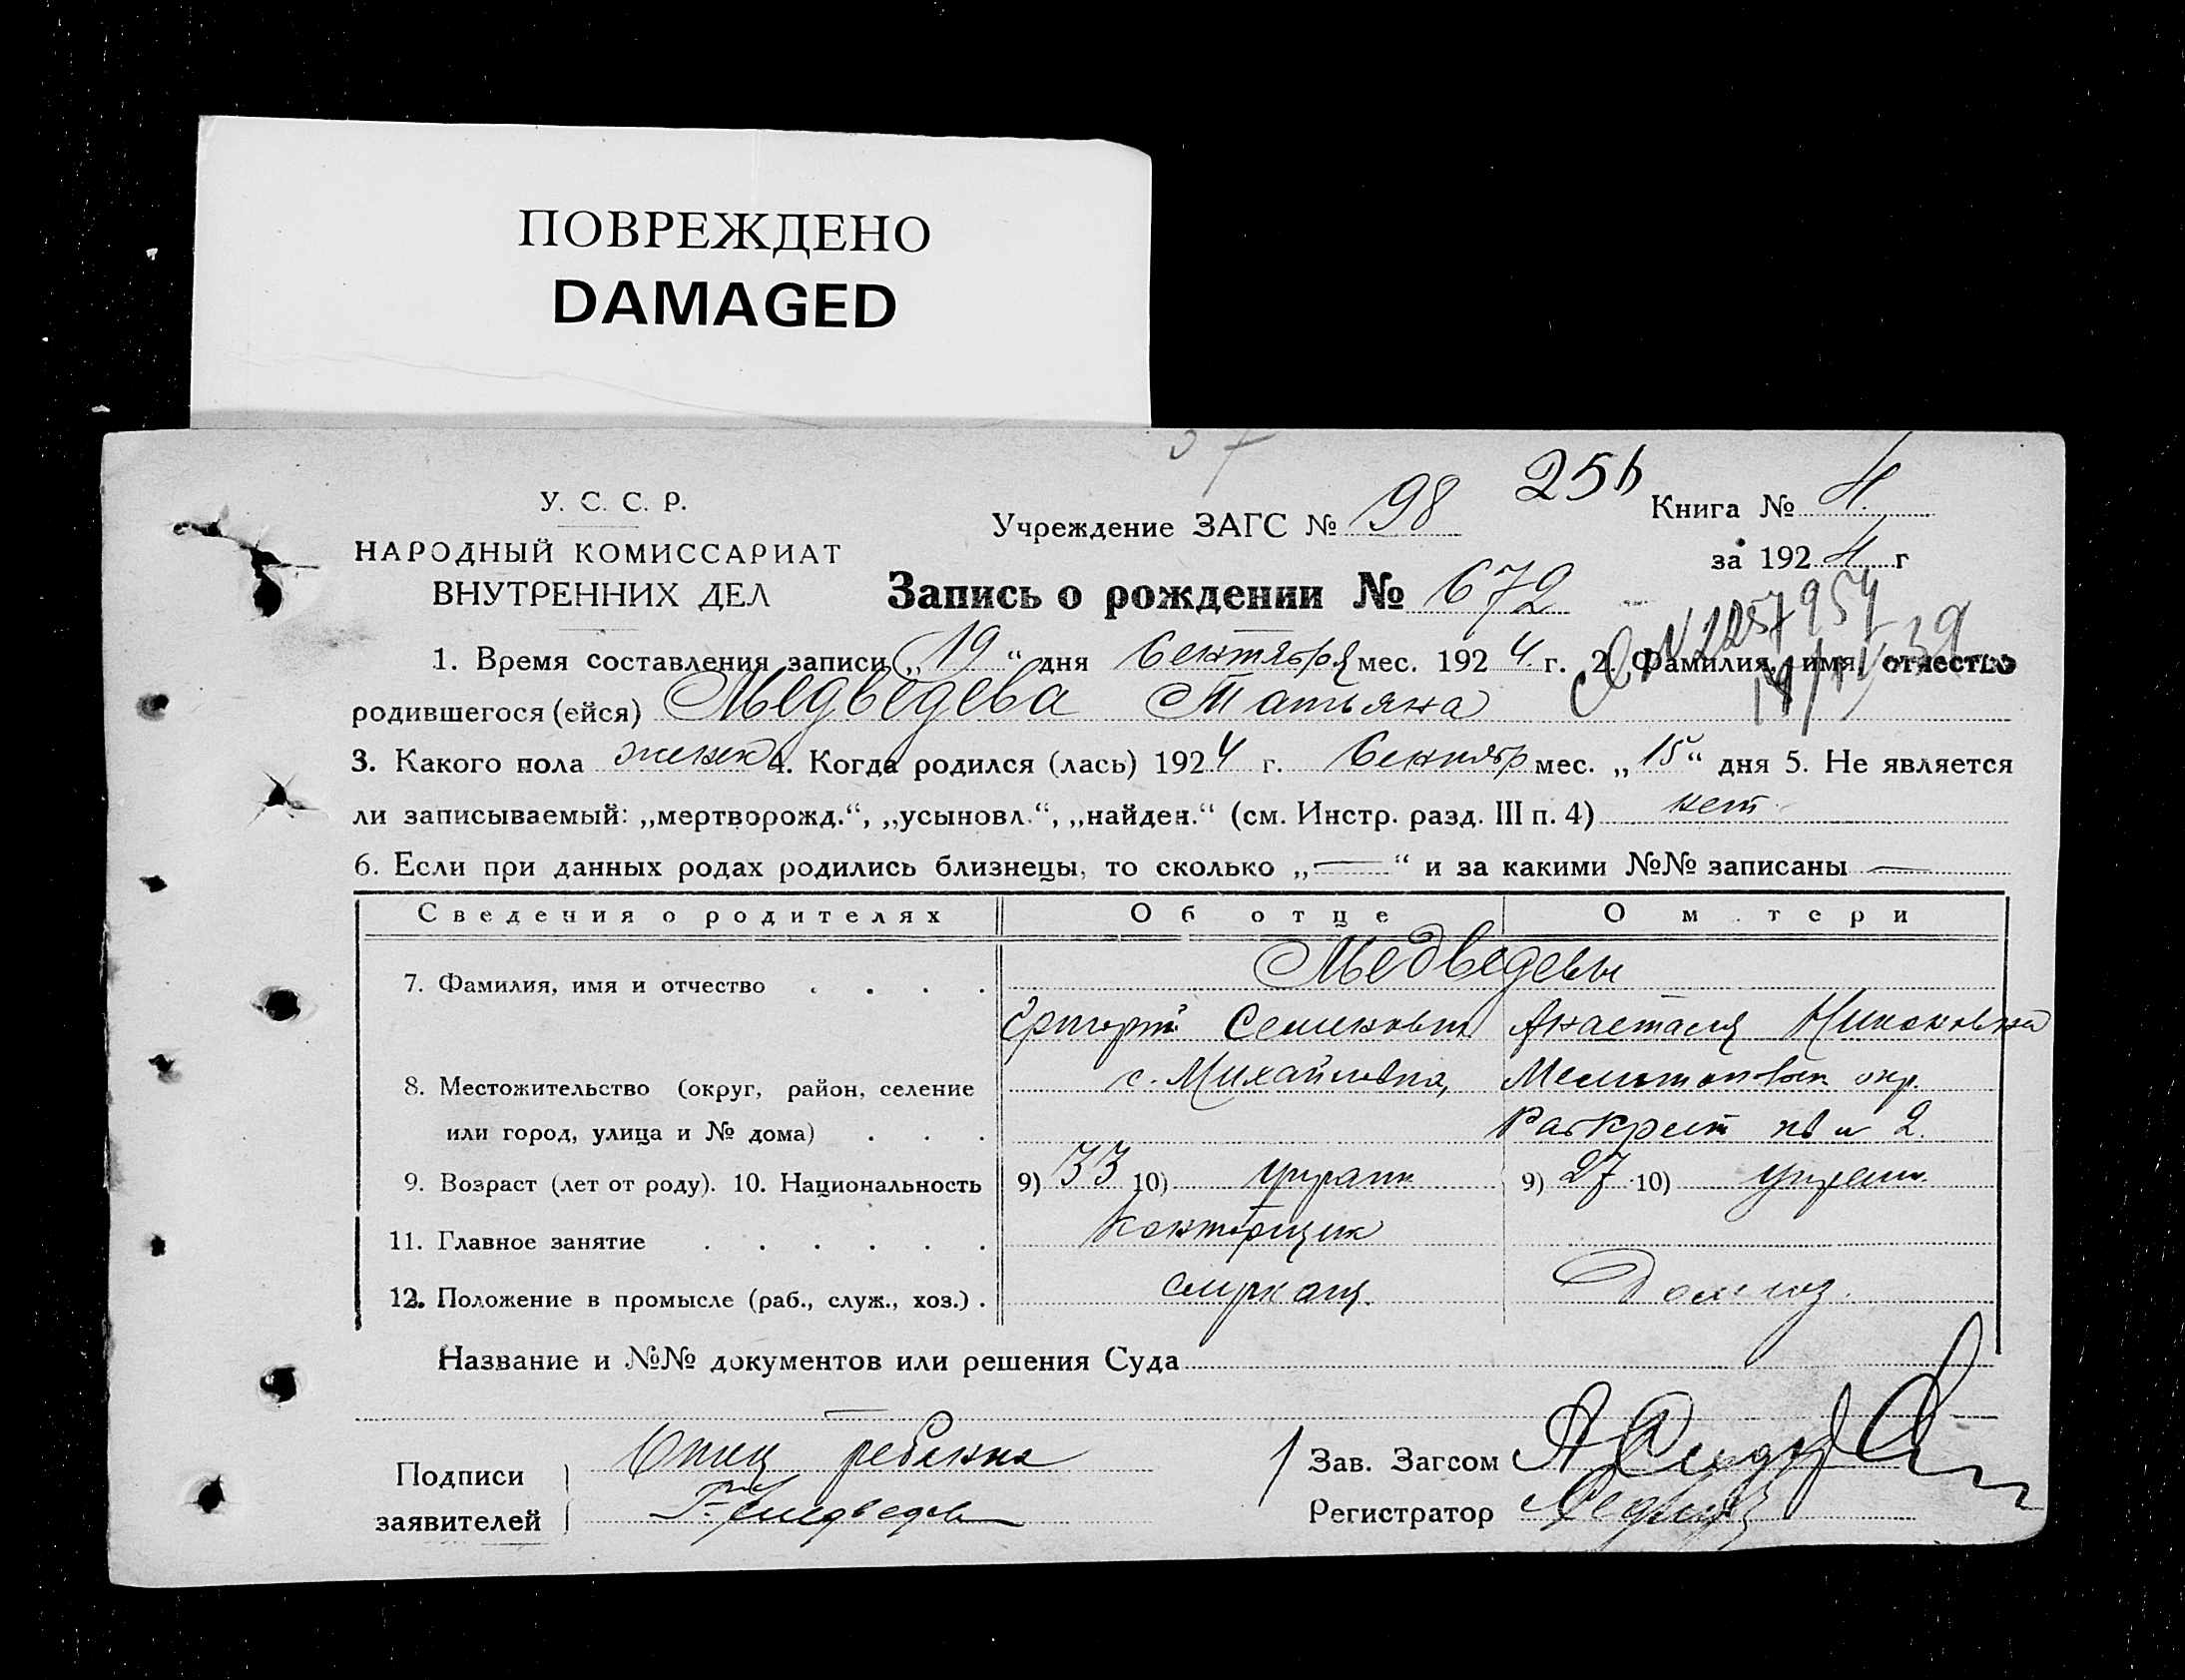 ПОВРЕЖДЕНО
DAMAGED
У. С. С. Р.
НАРОДНЫЙ КОМИССАРИАТ
ВНУТРЕННИХ ДЕЛ
Учреждение ЗАГС № 98
Книга № 4.
за 1924 г
Запись о рождении № 672
1. Время составления записи „19“ дня Сентября мес. 1924. г. 2. Фамилия, имя, отчество
родившегося (ейся) Медведева Татьяна
3. Какого пола женск 4. Когда родился (лась) 1924 г. Сентябр мес. „15“ дня 5. Не является
ли записываемый: „мертворожд.“, „усыновл.“, „найден.“ (см. Инстр. разд. III п. 4) нет
6. Если при данных родах родились близнецы, то сколько „—“ и за какими №№ записаны —
Сведения о родителях Об отце О м тери
7. Фамилия, имя и отчество . . . . Медведевы
Григорий Семенович Анастасия
8. Местожительство (округ, район, селение с. Михайловка, окр.
или город, улица и № дома) . . . 2.
9. Возраст (лет от роду). 10. Национальность 9) 33 10) 9) 27 10)
11. Главное занятие . . . . . . Конторщик
12. Положение в промысле (раб., служ., хоз.) .
Название и №№ документов или решения Суда
Подписи Отец ребенка
заявителей Г. Медведев
Зав. Загсом
Регистратор